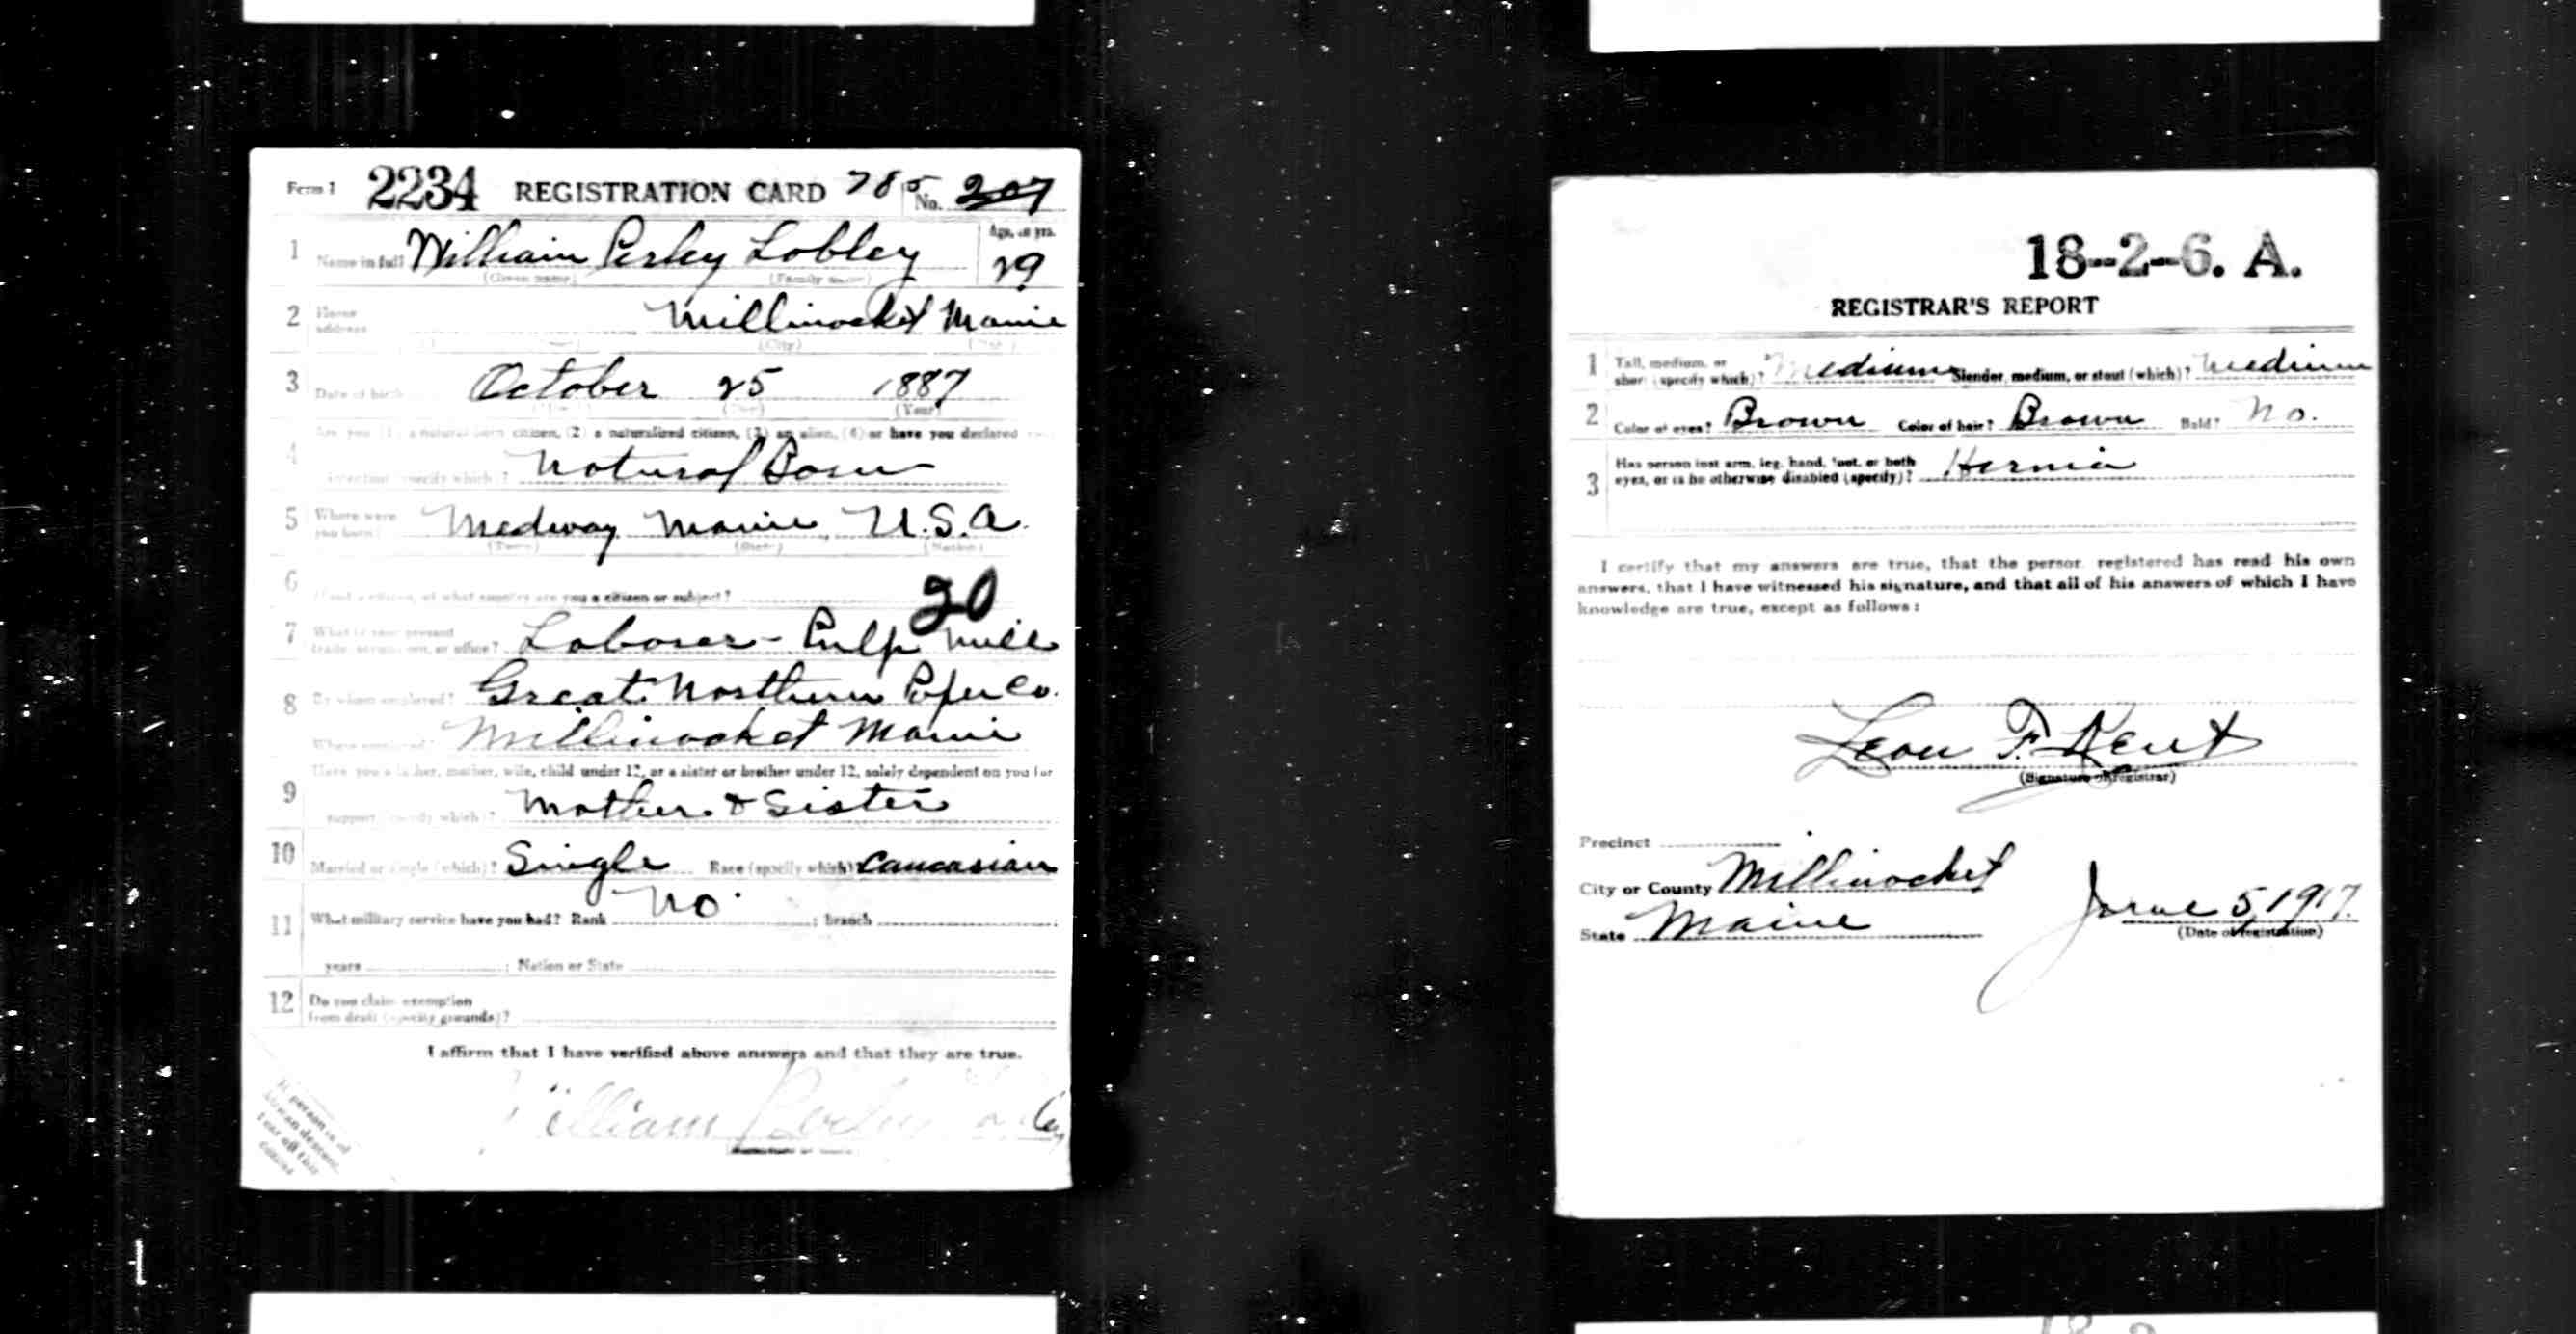 Form 1 2234 REGISTRATION CARD 785 No. 207
1 Name in full William Perley Lobley Age, in yrs. 29
(Given name) (Family name)
2 Home address Millinocket Maine
(City)
3 Date of birth October 25 1887
(Year)
4 Are you (1) a natural born citizen, (2) a naturalized citizen, (3) an alien, (4) or have you declared
intention (specify which)? Natural Born
5 Where were you born? Medway Maine, U.S.A.
(Town) (State) (Nation)
6 If not a citizen, of what country are you a citizen or subject?
20
7 What is your present trade, occupation, or office? Laborer - Pulp Mill
8 By whom employed? Great Northern Paper Co.
Where employed? Millinocket Maine
9 Have you a father, mother, wife, child under 12, or a sister or brother under 12, solely dependent on you for
support (specify which)? Mother & Sister
10 Married or single (which)? Single Race (specify which)? Caucasian
11 What military service have you had? Rank No. ; branch
years ; Nation or State
12 Do you claim exemption
from draft (specify grounds)?
I affirm that I have verified above answers and that they are true.
William Perley Lobley
If person is of
African descent,
tear off this
corner
18--2--6. A.
REGISTRAR'S REPORT
1 Tall, medium, or short (specify which)? Medium Slender, medium, or stout (which)? Medium
2 Color of eyes? Brown Color of hair? Brown Bald? No.
3 Has person lost arm, leg, hand, foot, or both
eyes, or is he otherwise disabled (specify)? Hernia
I certify that my answers are true, that the person registered has read his own
answers, that I have witnessed his signature, and that all of his answers of which I have
knowledge are true, except as follows:
Leon F. Kent
(Signature of registrar)
Precinct
City or County Millinocket
State Maine June 5, 1917.
(Date of registration)